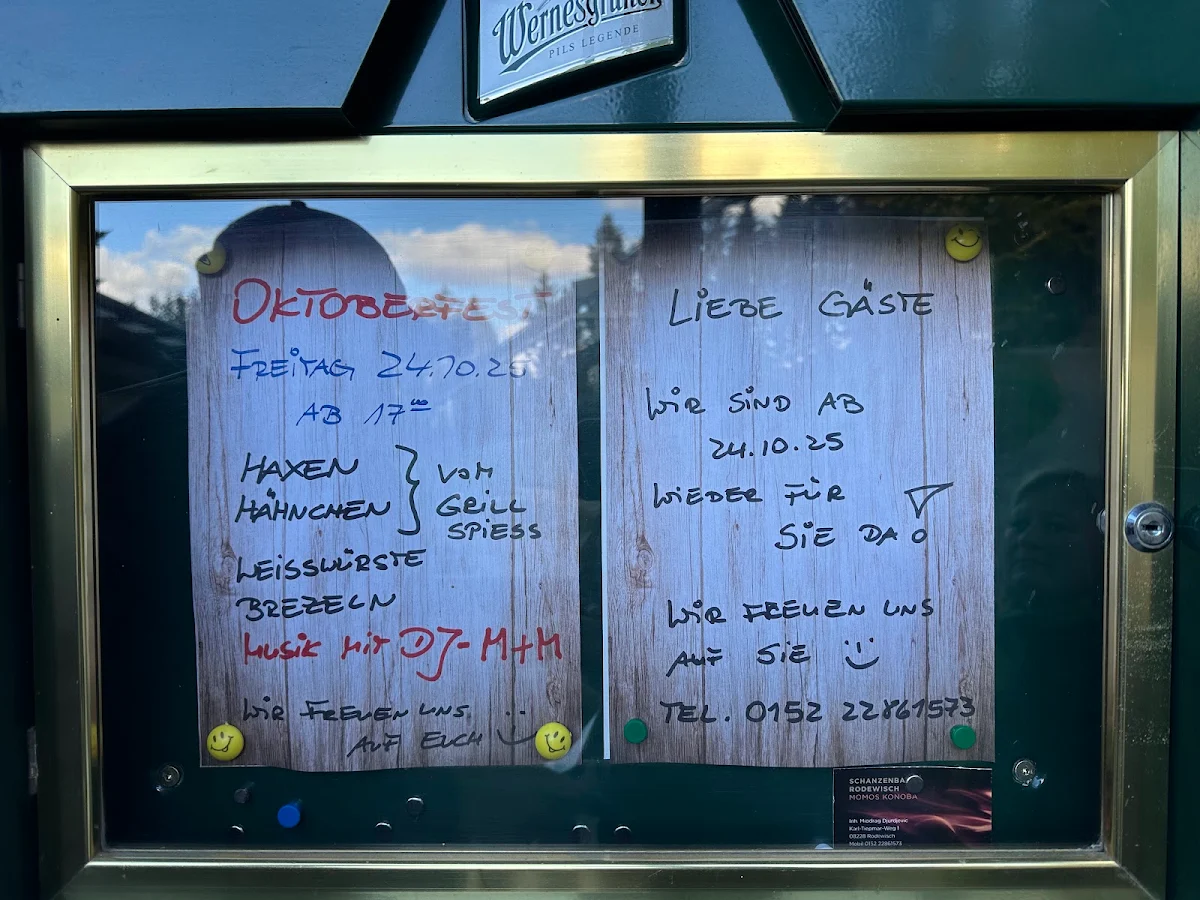 Wernesgrüner
PILS LEGENDE
OKTOBERFEST
FREITAG 24.10.25
AB 17⁰⁰
HAXEN
HÄHNCHEN
} VOM
GRILL
SPIESS
WEISSWÜRSTE
BREZELN
MUSIK MIT DJ-M+M
WIR FREUEN UNS
AUF EUCH
LIEBE GÄSTE
WIR SIND AB
24.10.25
WIEDER FÜR
SIE DA!
WIR FREUEN UNS
AUF SIE
TEL. 0152 22861573
SCHANZENBA
RODEWISCH
MOMOS KONOBA
Inh. Miodrag Djurdjevic
Karl-Tiepmar-Weg 1
08228 Rodewisch
Mobil 0152 22861573